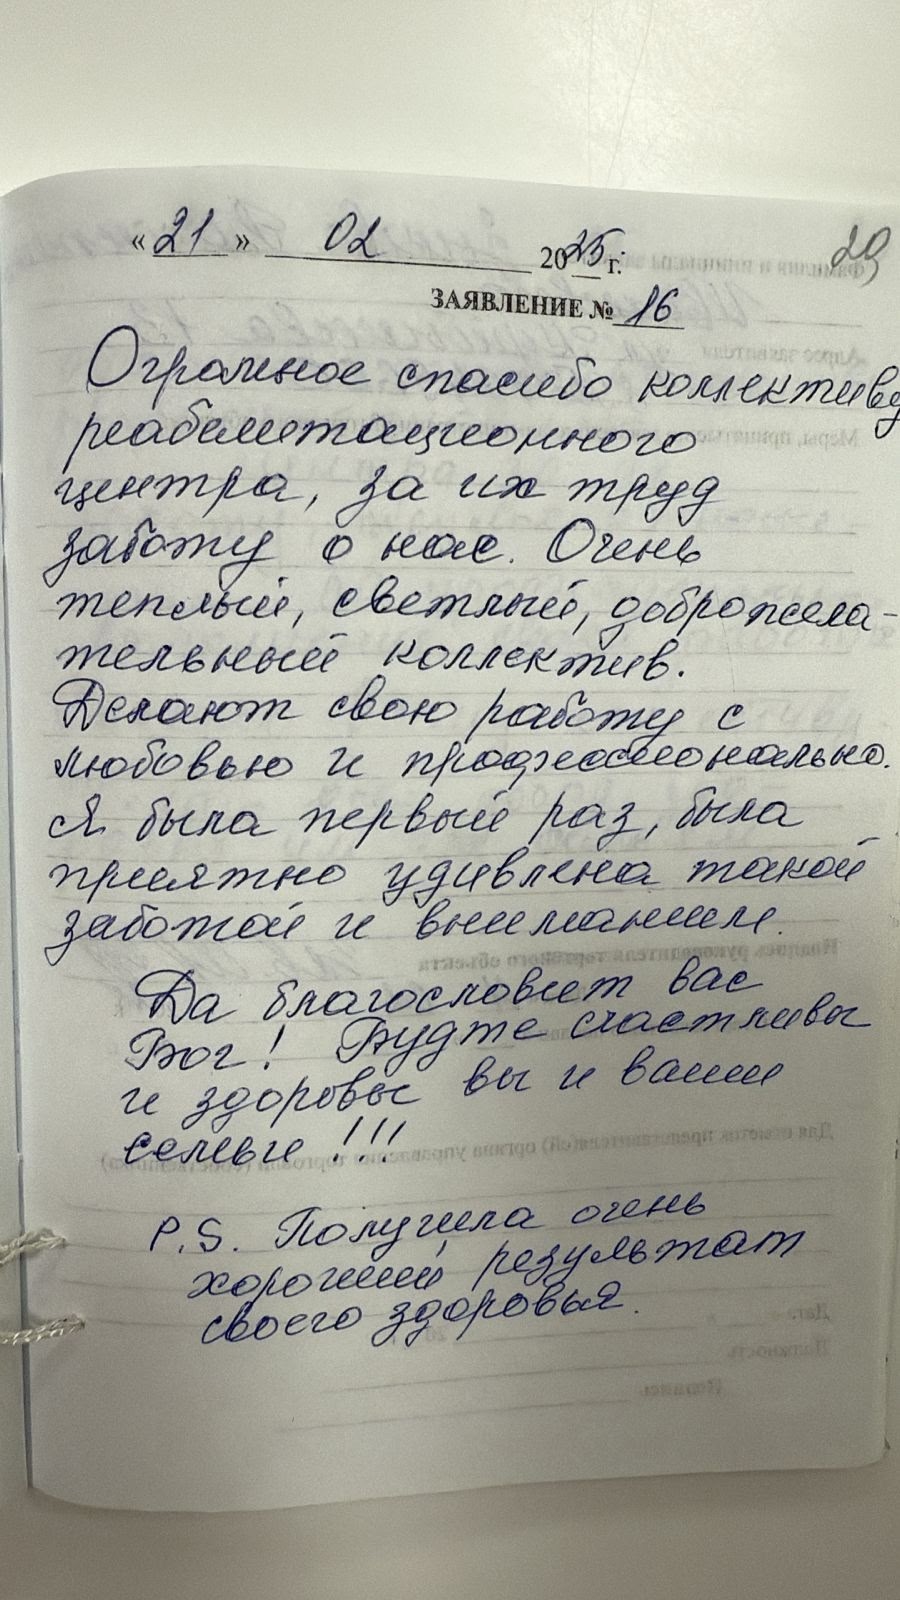 29
« 21 » 02 2025 г.
ЗАЯВЛЕНИЕ № 16
Огромное спасибо коллективу
реабилитационного
центра, за их труд
заботу о нас. Очень
теплый, светлый, доброжела-
тельный коллектив.
Делают свою работу с
любовью и профессионально.
Я была первый раз, была
приятно удивлена такой
заботой и вниманием.
Да благословит вас
Бог! Будте счастливы
и здоровы вы и ваши
семьи!!!
P.S. Получила очень
хороший результат
своего здоровья.